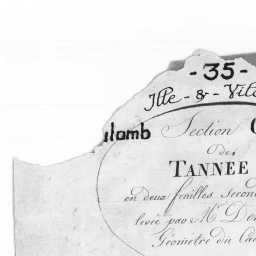 - 35 -
Ille - & - Vil
lomb Section
de
TANNEE
en deux feuilles Secon
levée par Mr D
Géomètre du Ca